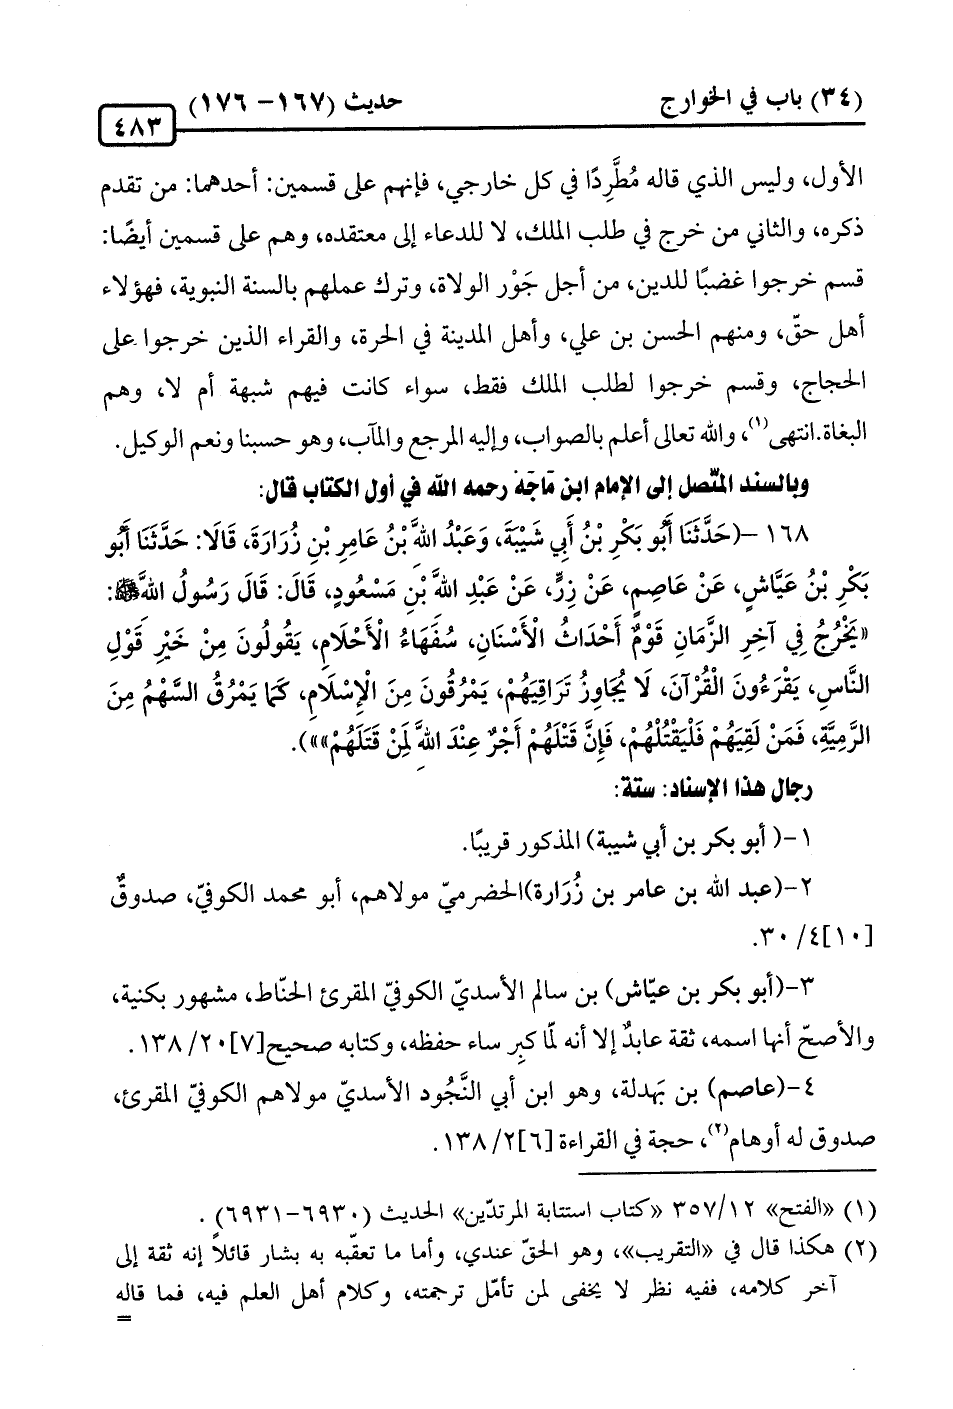 (٣٤) باب في الخوارج حديث (١٦٧- ١٧٦)
٤٨٣
الأول، وليس الذي قاله مُطَّرِدًا في كل خارجي، فإنهم على قسمين: أحدهما: من تقدم
ذكره، والثاني من خرج في طلب الملك، لا للدعاء إلى معتقده، وهم على قسمين أيضًا:
قسم خرجوا غضبًا للدين، من أجل جَوْر الولاة، وترك عملهم بالسنة النبوية، فهؤلاء
أهل حقّ، ومنهم الحسن بن علي، وأهل المدينة في الحرة، والقراء الذين خرجوا على
الحجاج، وقسم خرجوا لطلب الملك فقط، سواء كانت فيهم شبهة أم لا، وهم
البغاة.انتهى(١)، والله تعالى أعلم بالصواب، وإليه المرجع والمآب، وهو حسبنا ونعم الوكيل.
وبالسند المتّصل إلى الإمام ابن مَاجَهْ رحمه الله في أول الكتاب قال:
١٦٨ -(حَدَّثَنَا أَبُو بَكْرِ بْنُ أَبِي شَيْبَةَ، وَعَبْدُ اللهِ بْنُ عَامِرِ بْنِ زُرَارَةَ، قَالَا: حَدَّثَنَا أَبُو
بَكْرِ بْنُ عَيَّاشٍ، عَنْ عَاصِمٍ، عَنْ زِرٍّ، عَنْ عَبْدِ اللهِ بْنِ مَسْعُودٍ، قَالَ: قَالَ رَسُولُ اللهِ ﷺ:
«يَخْرُجُ فِي آخِرِ الزَّمَانِ قَوْمٌ أَحْدَاثُ الْأَسْنَانِ، سُفَهَاءُ الْأَحْلَامِ، يَقُولُونَ مِنْ خَيْرِ قَوْلِ
النَّاسِ، يَقْرَءُونَ الْقُرْآنَ، لَا يُجَاوِزُ تَرَاقِيَهُمْ، يَمْرُقُونَ مِنَ الْإِسْلَامِ، كَمَا يَمْرُقُ السَّهْمُ مِنَ
الرَّمِيَّةِ، فَمَنْ لَقِيَهُمْ فَلْيَقْتُلْهُمْ، فَإِنَّ قَتْلَهُمْ أَجْرٌ عِنْدَ اللهِ لِمَنْ قَتَلَهُمْ»»).
رجال هذا الإسناد: ستة:
١-( أبو بكر بن أبي شيبة) المذكور قريبًا.
٢-(عبد الله بن عامر بن زُرَارة)الحضرميّ مولاهم، أبو محمد الكوفيّ، صدوقٌ
[١٠]٤/ ٣٠.
٣-(أبو بكر بن عيّاش) بن سالم الأسديّ الكوفيّ المقرئ الحنّاط، مشهور بكنية،
والأصحّ أنها اسمه، ثقة عابدٌ إلا أنه لمّا كبِر ساء حفظه، وكتابه صحيح[٧]٢٠/ ١٣٨.
٤-(عاصم) بن بَهدلة، وهو ابن أبي النَّجُود الأسديّ مولاهم الكوفيّ المقرئ،
صدوق له أوهام(٢)، حجة في القراءة [٦]٢/ ١٣٨.
(١) «الفتح» ١٢/ ٣٥٧ «كتاب استتابة المرتدّين» الحديث (٦٩٣٠-٦٩٣١) .
(٢) هكذا قال في «التقريب»، وهو الحقّ عندي، وأما ما تعقّبه به بشار قائلاً إنه ثقة إلى
آخر كلامه، ففيه نظر لا يخفى لمن تأمّل ترجمته، وكلام أهل العلم فيه، فما قاله
=